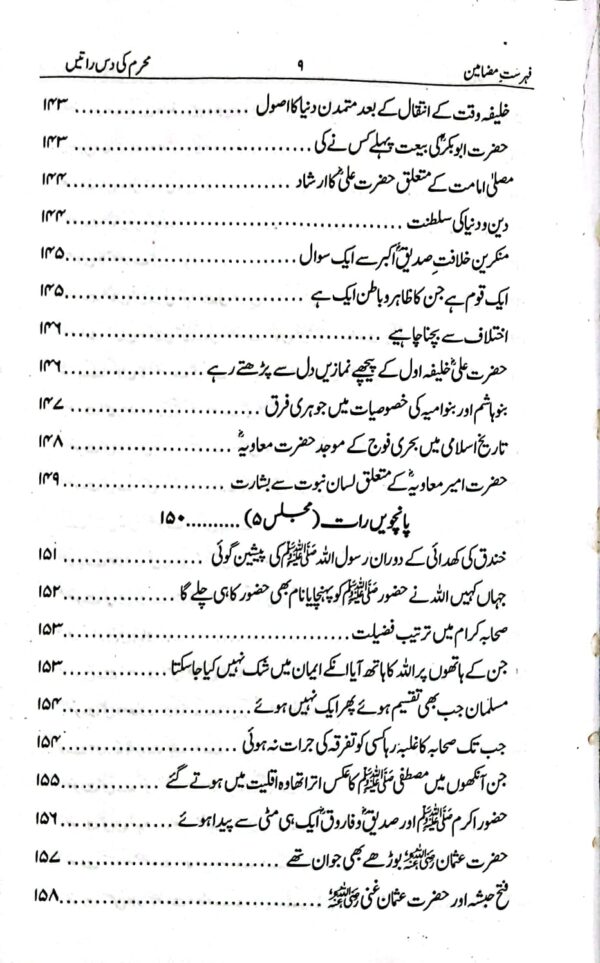 فہرست مضامین ۹ محرم کی دس راتیں
خلیفہ وقت کے انتقال کے بعد متمدن دنیا کا اصول ........................ ۱۴۳
حضرت ابوبکرؓ کی بیعت پہلے کس نے کی ........................ ۱۴۳
مصلیٰ امامت کے متعلق حضرت علیؓ کا ارشاد ........................ ۱۴۴
دین و دنیا کی سلطنت ........................ ۱۴۴
منکرین خلافتِ صدیقؓ اکبر سے ایک سوال ........................ ۱۴۵
ایک قوم ہے جن کا ظاہر و باطن ایک ہے ........................ ۱۴۵
اختلاف سے بچنا چاہیے ........................ ۱۴۶
حضرت علیؓ خلیفہ اول کے پیچھے نمازیں دل سے پڑھتے رہے ........................ ۱۴۶
بنو ہاشم اور بنو امیہ کی خصوصیات میں جوہری فرق ........................ ۱۴۷
تاریخ اسلامی میں بحری فوج کے موجد حضرت معاویہؓ ........................ ۱۴۸
حضرت امیر معاویہؓ کے متعلق لسان نبوت سے بشارت ........................ ۱۴۹
پانچویں رات (مجلس ۵) .......... ۱۵۰
خندق کی کھدائی کے دوران رسول اللہ ﷺ کی پیشین گوئی ........................ ۱۵۱
جہاں کہیں اللہ نے حضور ﷺ کو پہنچایا نام بھی حضور کا ہی چلے گا ........................ ۱۵۲
صحابہ کرام میں ترتیب فضیلت ........................ ۱۵۳
جن کے ہاتھوں پر اللہ کا ہاتھ آیا انکے ایمان میں شک نہیں کیا جا سکتا ........................ ۱۵۳
مسلمان جب بھی تقسیم ہوئے پھر ایک نہیں ہوئے ........................ ۱۵۴
جب تک صحابہ کا غلبہ رہا کسی کو تفرقہ کی جرات نہ ہوئی ........................ ۱۵۴
جن آنکھوں میں مصطفی ﷺ کا عکس اترا تھا وہ اقلیت میں ہوتے گئے ........................ ۱۵۵
حضور اکرم ﷺ اور صدیقؓ و فاروقؓ ایک ہی مٹی سے پیدا ہوئے ........................ ۱۵۶
حضرت عثمان رضی اللہ عنہ بوڑھے بھی جوان تھے ........................ ۱۵۷
فتح حبشہ اور حضرت عثمان غنی رضی اللہ عنہ ........................ ۱۵۸